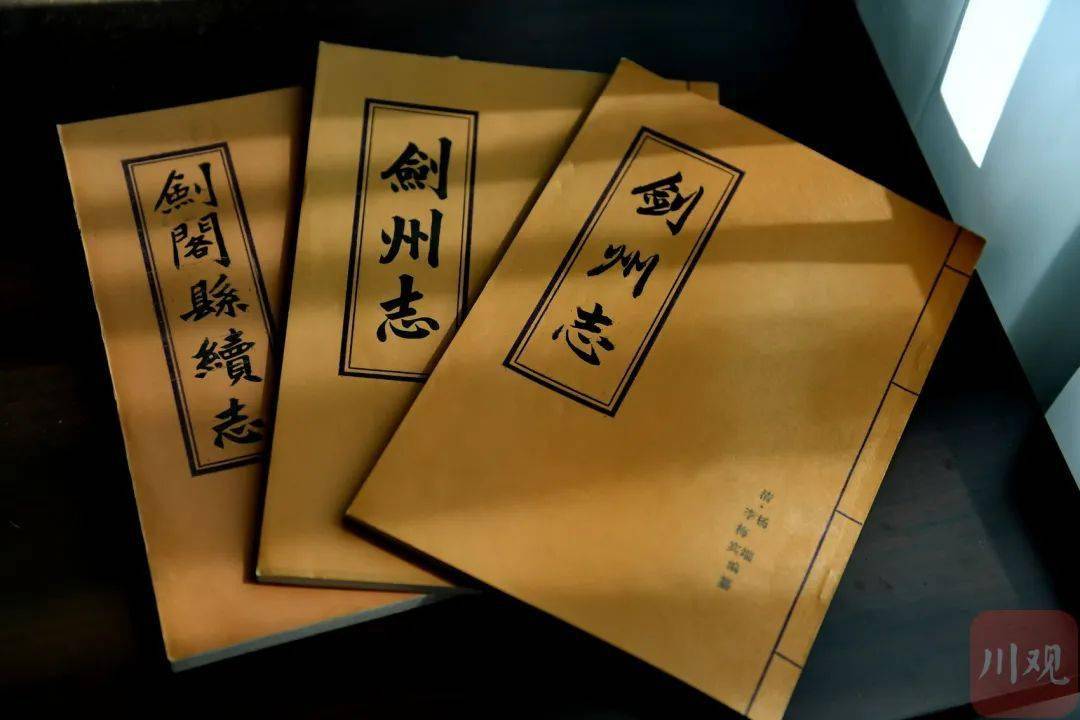 劍閣縣續志
劍州志
剑州志
清·杨端
李梅宾编纂
川观